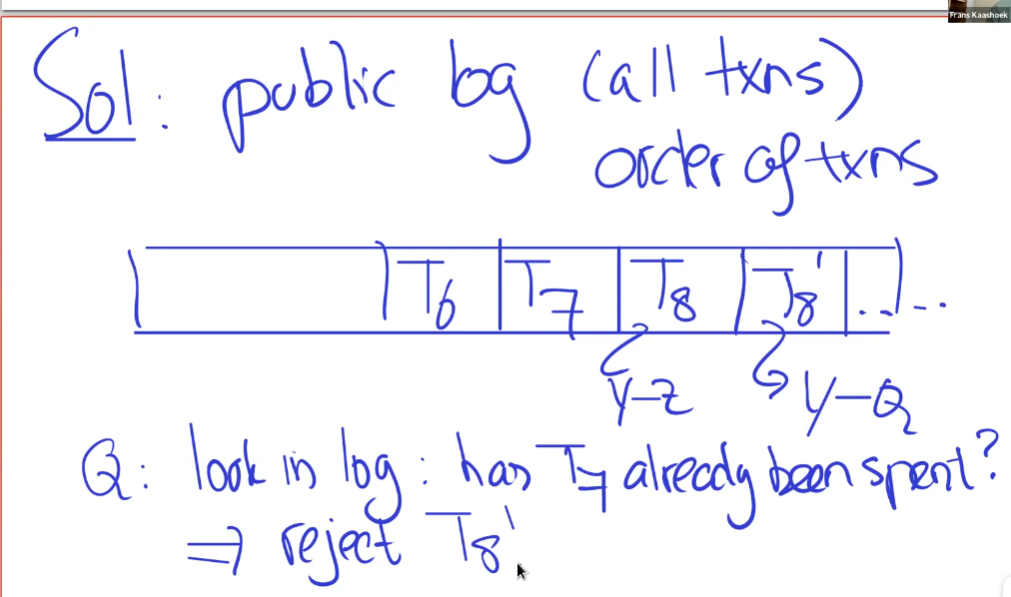 Frans Kaashoek
Sol: public log (all txns)
order of txns
T6 T7 T8 T8' ....
Y-Z Y-Q
Q: look in log: has T7 already been spent?
⇒ reject T8'